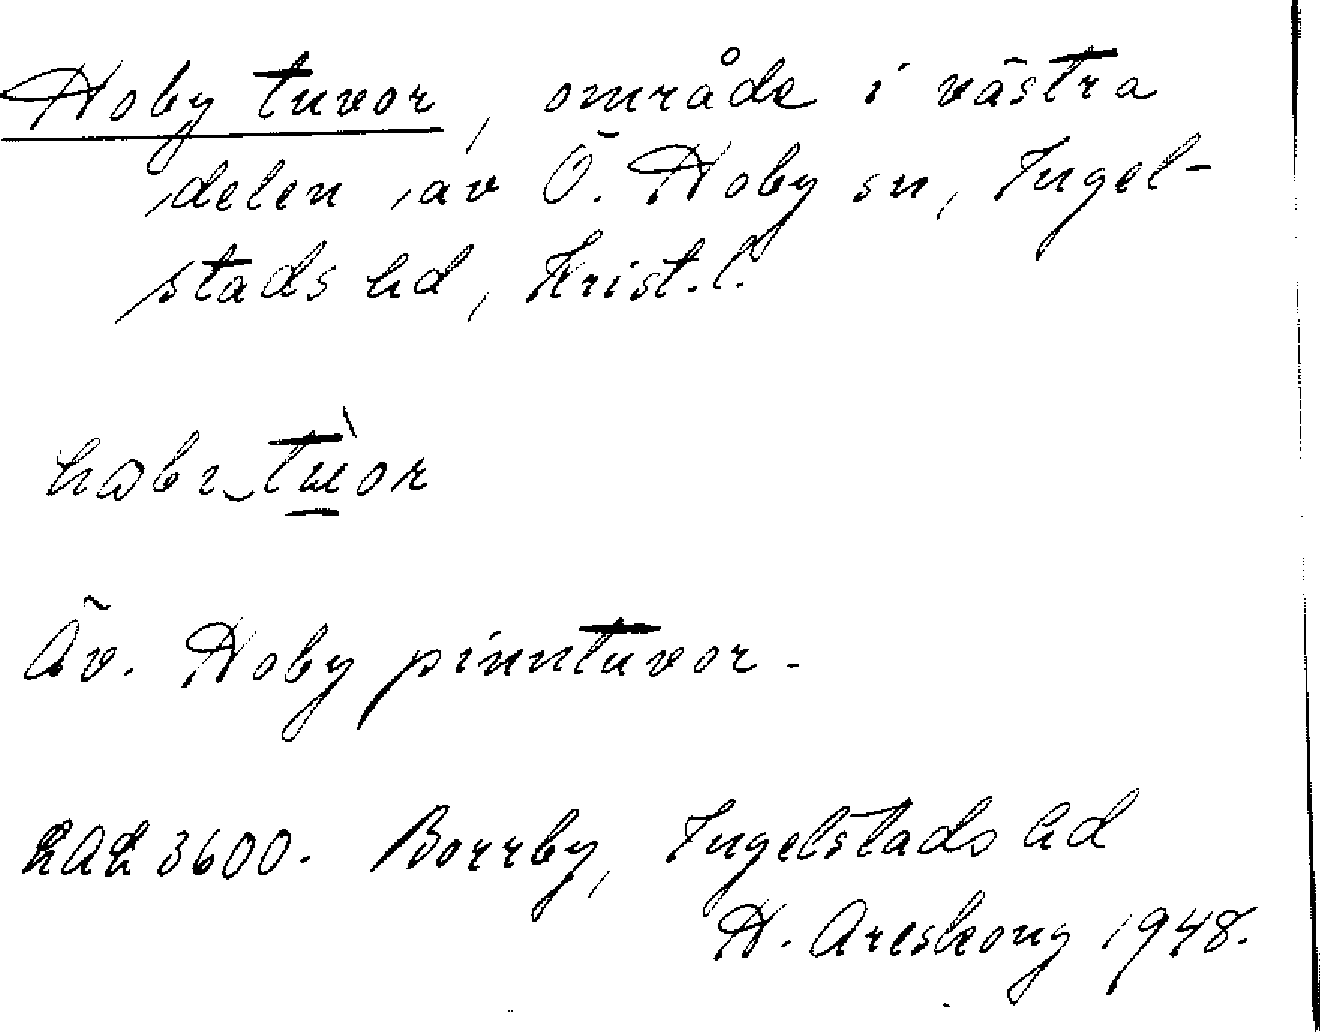 Hoby tuvor, område i västra
delen av Ö. Hoby sn, Ingel-
stads hd, Krist. l.
Äv. Hoby pinntuvor.
LAL 3600. Borrby, Ingelstads hd
H. Areskoug 1948.